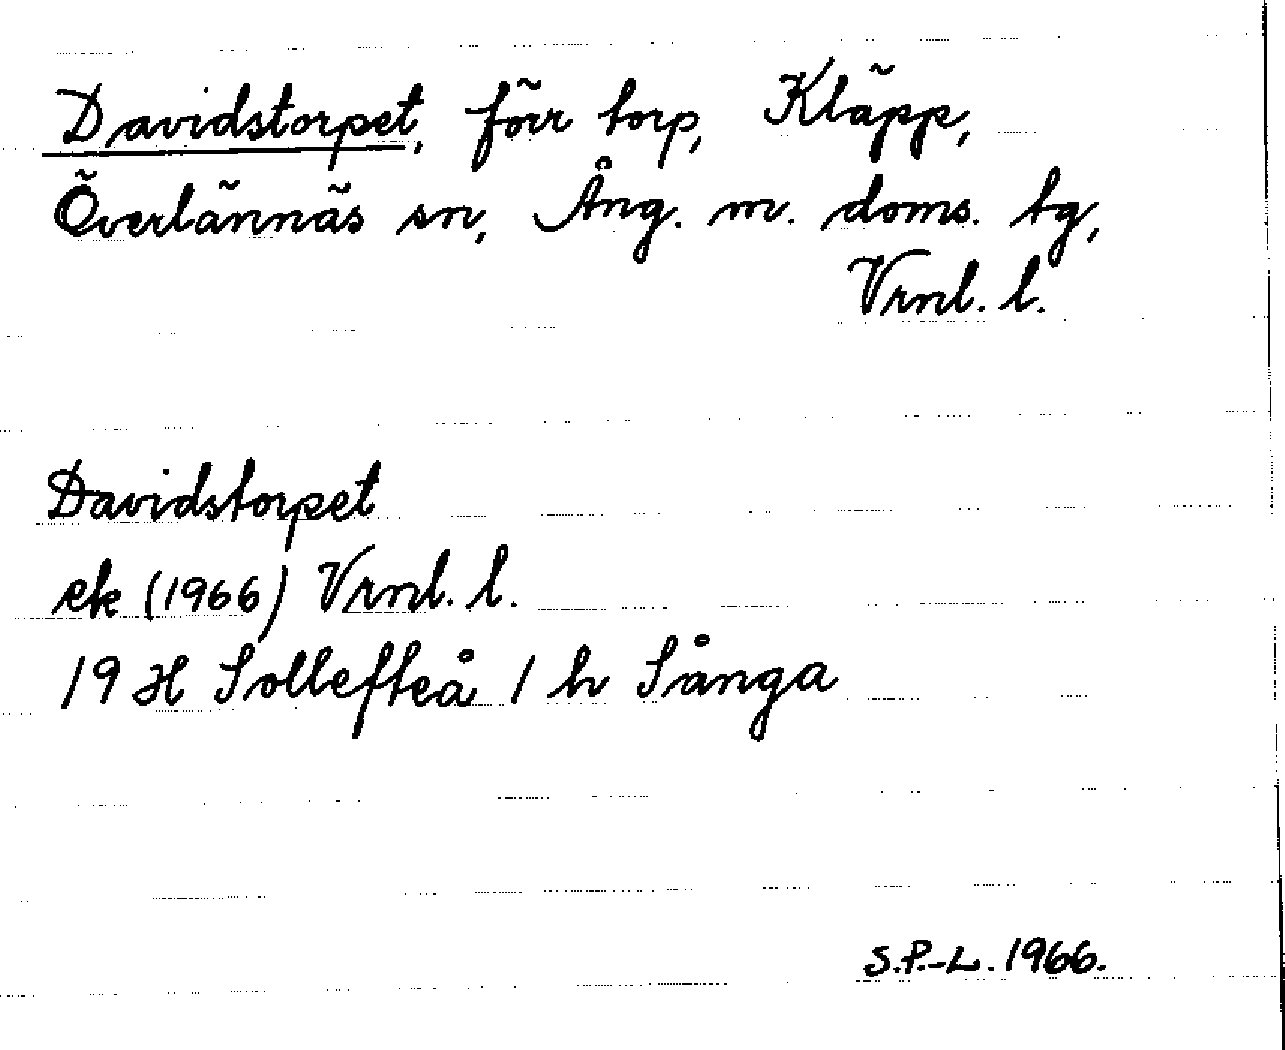 Davidstorpet, förr torp, Kläpp,
Överlännäs sn, Ång. m. doms. tg,
Vrnl. l.
Davidstorpet
ek (1966) Vrnl. l.
19 H Sollefteå 1 h Sånga
S.P.-L. 1966.